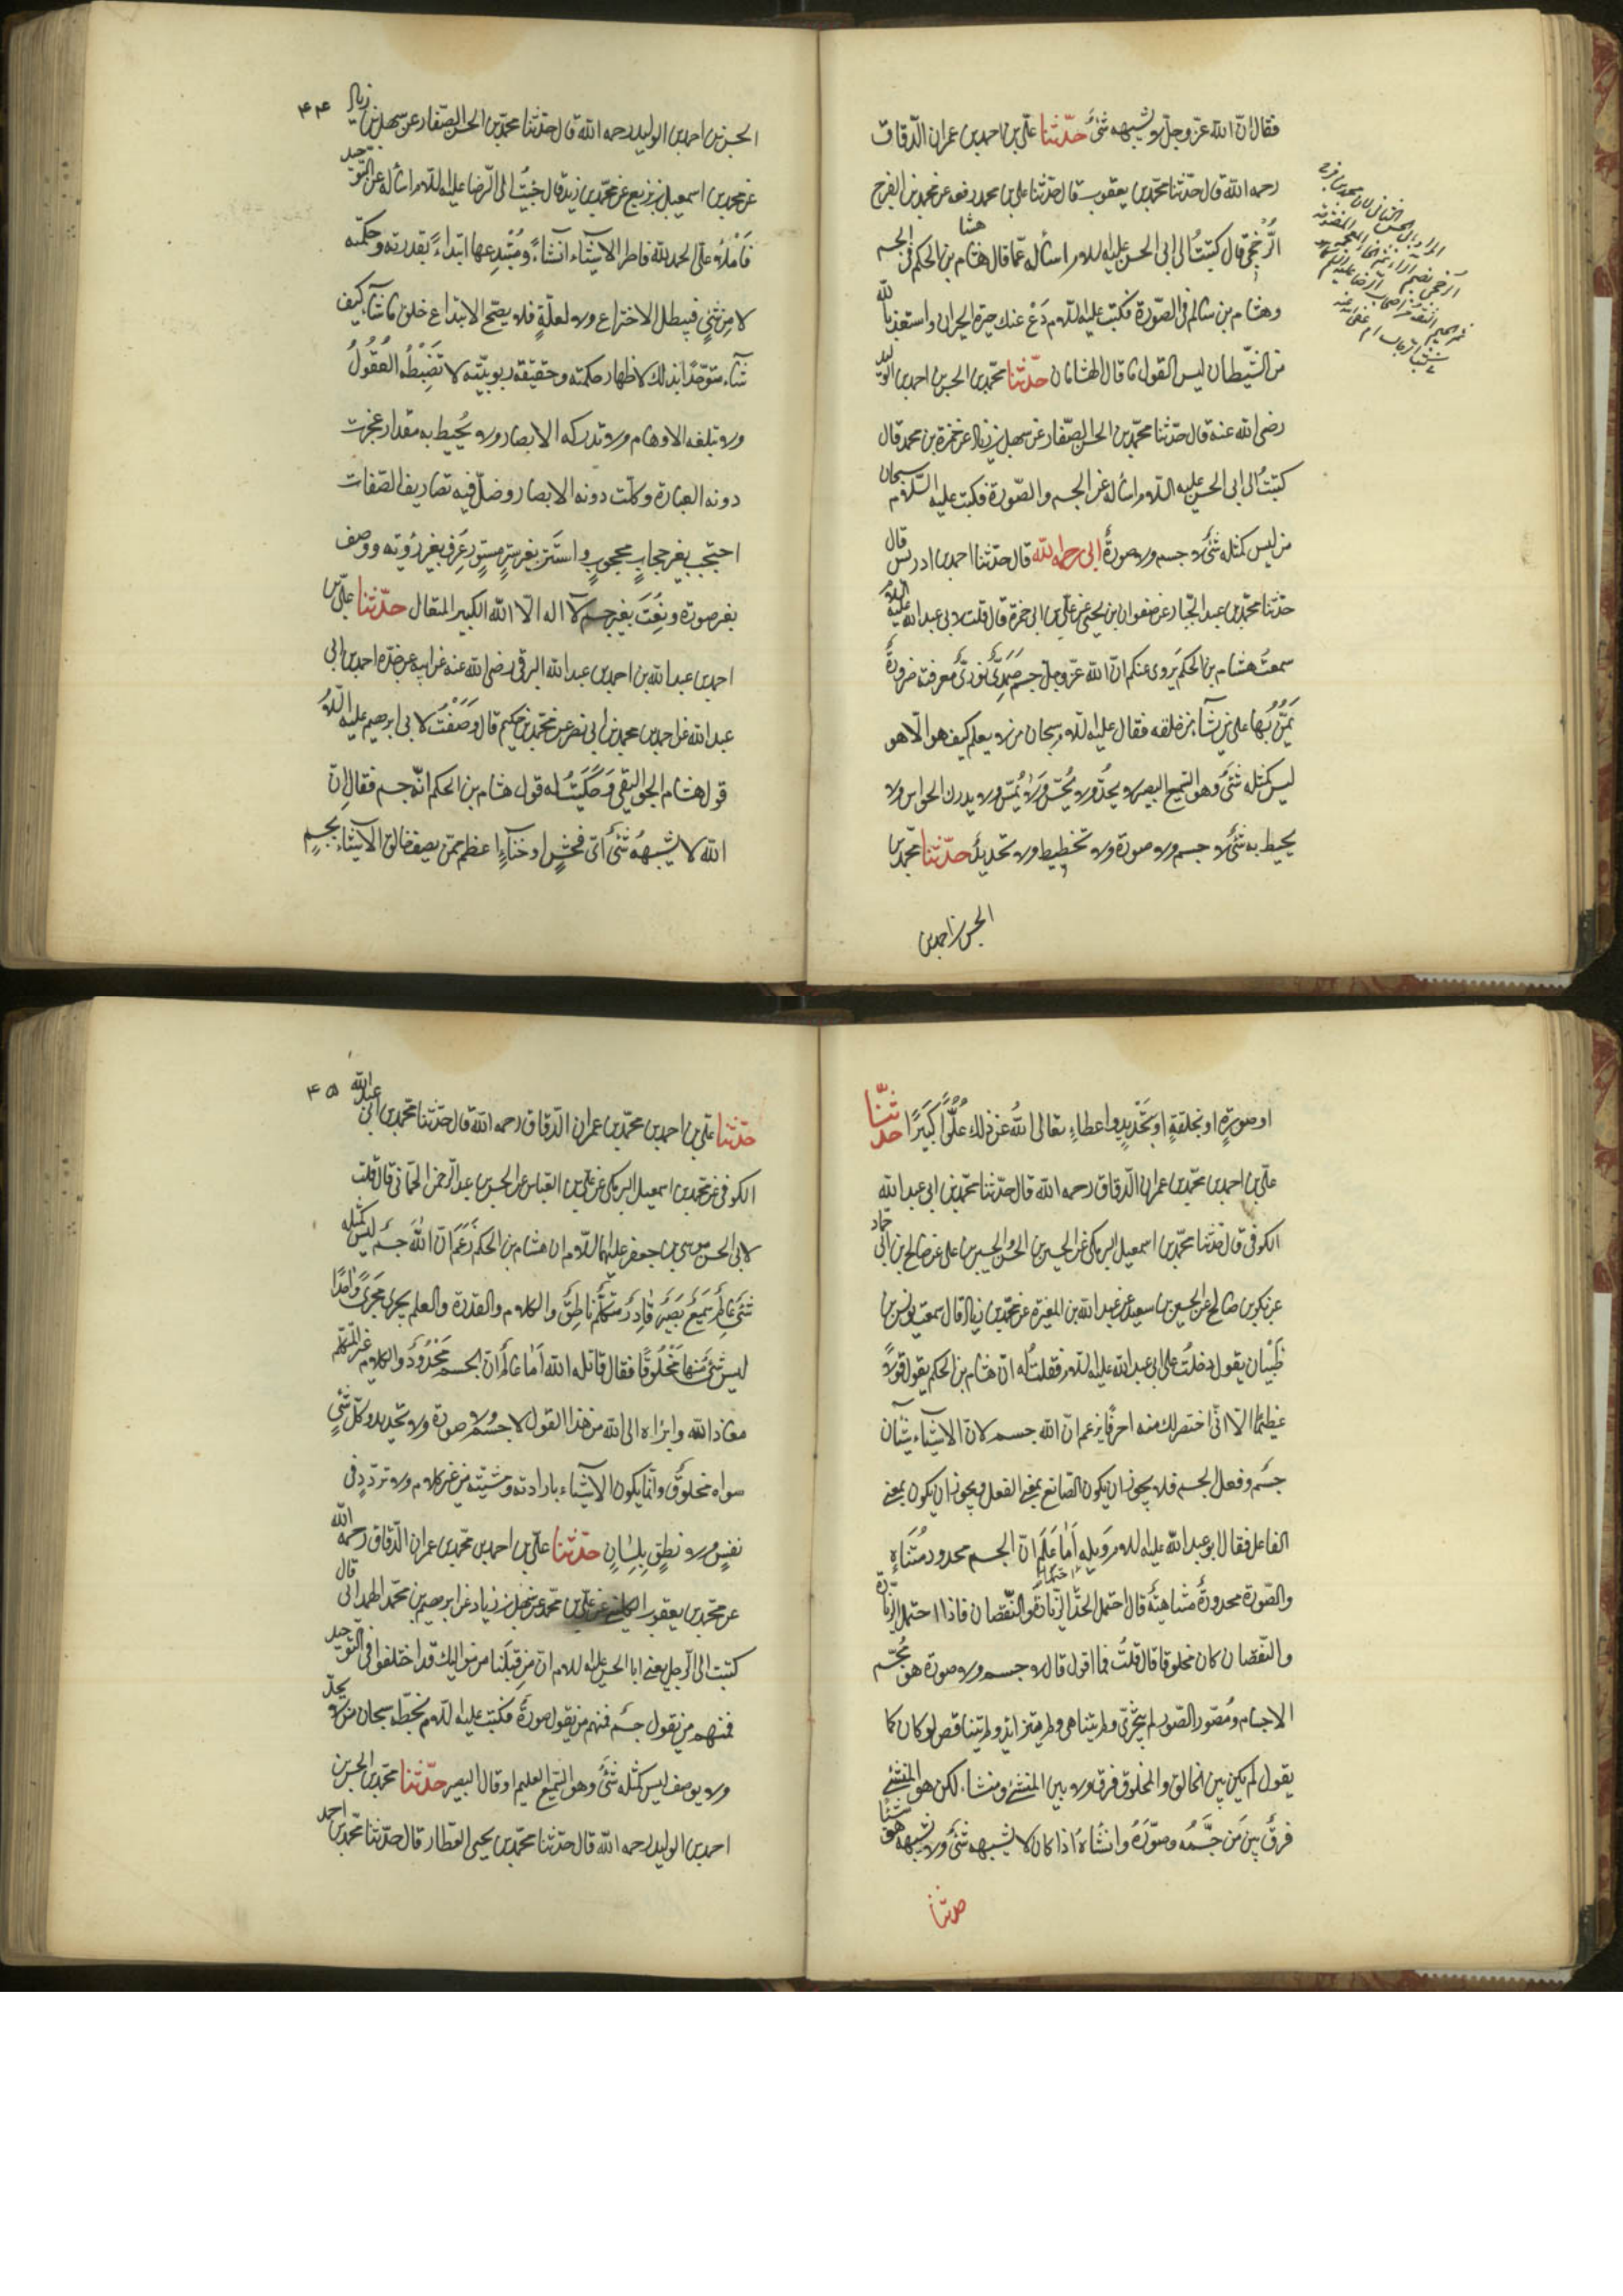 فقال انّ الله عزّ وجلّ لا يشبهه شئ حدّثنا علي بن احمد بن عمران الدّقاق
رحمه الله قال حدّثنا محمّد بن يعقوب قال حدّثنا علي بن محمد رفعه عن محمد بن الفرج
الرُّخّجي قال كتبتُ الى ابى الحسن عليه السلام اسأله عمّا قال هشام بن الحكم فى الجسم
وهشام بن سالم فى الصّورة فكتب عليه السّلام دَعْ عنك حيرة الحيران واستعذ بالله
من الشّيطان ليس القول ما قال الهشامان حدّثنا محمّد بن الحسن بن احمد بن الوليد
رضى الله عنه قال حدّثنا محمّد بن الحسن الصّفار عن سهل بن زياد عن حمزة بن محمد قال
كتبتُ الى ابى الحسن عليه السلام اسأله عن الجسم والصّورة فكتب عليه السّلام سبحان
من ليس كمثله شئ لا جسم ولا صورة ابى رحمه الله قال حدّثنا احمد بن ادريس قال
حدّثنا محمّد بن عبد الجبّار عن صفوان بن يحيى عن علي بن ابى حمزة قال قلت لابى عبد الله عليه السلام
سمعتُ هشام بن الحكم يَروى عنكم انّ الله عزّ وجلّ جسم صَمَدىّ نورىّ معرفته ضرورة
يَمُنُّ بها على من يشآء من خلقه فقال عليه السلام سبحان من لا يعلم كيف هو الّا هو
ليس كمثله شئ وهو السّميع البصير لا يحدّ ولا يُحسّ ولا يُمسّ ولا يدرك الحواس ولا
يحيط به شئ لا جسم ولا صورة ولا تخطيط ولا تحديد حدّثنا محمّد بن
الحسن بن احمد بن
۴۴
الحسن بن احمد بن الوليد رحمه الله قال حدّثنا محمّد بن الحسن الصّفار عن سهل بن زياد
عن محمد بن اسمعيل بن بزيع عن محمّد بن زيد قال جئتُ الى الرّضا عليه السلام اسأله عن التّوحيد
فَاَمْلاَء علىّ الحمد لله فاطر الاشيآء انشاءً ومُبْتدِعها ابتداءً بقدرته وحكمته
لا من شئٍ فيبطل الاختراع ولا لعلّةٍ فلا يصحّ الابتداع خلق ما شآء كيف
شآء متوحّدًا بذلك لاظهار حكمته وحقيقة ربوبيّته لا تَضْبِطُه العُقُولُ
ولا تبلغه الاوهام ولا تدركه الابصار ولا يُحيط به مقدار عجزت
دونه العبارة وكلّت دونه الابصار وضلّ فيه تصاريف الصّفات
احتجب بغير حجابٍ محجوبٍ واستَتر بغير سِترٍ مستورٍ عُرِفَ بغير رُؤيته ووصف
بغير صورة ونُعِتَ بغير جسم لآ اله الّا الله الكبير المتعال حدّثنا علي بن
احمد بن عبد الله بن احمد بن عبد الله البرقى رضى الله عنه عن ابيه عن جدّه احمد بن ابى
عبد الله عن احمد بن محمد بن ابى نصر عن محمّد بن حكيم قال وَصَفْتُ لابى ابرهيم عليه السّلام
قول هشام الجواليقى وَحَكَيتُ له قول هشام بن الحكم انّه جسم فقال انّ
الله لا يشبههُ شئ اىّ فحشٍ او خَنآءٍ اعظم ممّن يصف خالق الاشيآء بجسمٍ
او صورةٍ او بخلقةٍ او بتَحْديدٍ او اعضاءٍ تعالى اللهُ عن ذلك عُلُوًّا كَبيرًا حدّثنا
علي بن احمد بن محمّد بن عمران الدّقاق رحمه الله قال حدّثنا محمّد بن ابى عبد الله
الكوفى قال حدّثنا محمّد بن اسمعيل البرمكى عن الحسين بن الحسن والحسين بن على عن صالح بن ابى حماد
عن بكر بن صالح عن الحسين بن سعيد عن عبد الله بن المغيرة عن محمّد بن زياد قال سمعت يونس بن
ظَبْيان يقول دخلتُ على ابى عبد الله عليه السلام فقلتُ له انّ هشام بن الحكم يقول قولًا
عظيمًا الّا انّى اختصر لك منه احرفًا يزعم انّ الله جسم لانّ الاشيآء شيئآن
جسم وفعل الجسم فلا يجوز ان يكون الصّانع بمعنى الفعل ويجوز ان يكون بمعنى
الفاعل فقال ابو عبد الله عليه السلام وَيله اَمَا عَلِمَ انّ الجسم محدود مُتَناهٍ
والصّورة محدودة متناهية قال احتمل الحدّ الزّيادة والنّقصان فاذا احتمل الزّيادة
والنّقصان كان مخلوقا قال قلتُ فما اقول قال لا جسم ولا صورة هو مُجسّم
الاجسام ومُصوّر الصّور لم يتجزّى ولم يتناهى ولم يتزايد ولم يتناقص لو كان كما
يقول لم يكن بين الخالق والمخلوق فرق ولا بين المنشئ ومنشاء لكن هو المنشئ
فرقٌ بين مَن جسَّمه وصوّرَه وانشاهُ اذا كان لا يشبهه شئ ولا يشبه هو شيئًا
حدّثنا
۴۵
حدّثنا علي بن احمد بن محمّد بن عمران الدّقاق رحمه الله قال حدّثنا محمّد بن ابى عبد الله
الكوفى عن محمّد بن اسمعيل البرمكى عن علي بن العبّاس عن الحسن بن عبد الرّحمن الحمّانى قال قلت
لابى الحسن موسى بن جعفر عليهما السّلام ان هشام بن الحكم زَعَمَ انّ اللهَ جسم ليس كمثله
شئ عالم سَميعٌ بَصيرٌ قادِرٌ متكلّم ناطِقٌ والكلام والقدرة والعلم يجرى مَجرىً واحدًا
ليس شئ منها مَخْلُوقًا فقال قاتله الله اَمَا عَلِمَ انّ الجسم مَحْدُودٌ والكلام غير المتكلّم
معاذ الله وابراء الى الله من هذا القول لا جِسْمٌ ولا صورة ولا تحديد وكلّ شئٍ
سواه مخلوقٌ وانّما يكون الاشيآء بارادته ومشيّته من غير كلام ولا تردّدٍ فى
نفسٍ ولا نطقٍ بلسانٍ حدّثنا علي بن احمد بن محمّد بن عمران الدّقاق رحمه الله
عن محمّد بن يعقوب الكلينى عن علي بن محمّد عن سهل بن زياد عن ابرهيم بن محمّد الهمدانى قال
كتبت الى الرّجل يعنى ابا الحسن عليه السلام انّ من قِبَلَنا من مواليك قد اختلفوا فى التّوحيد
فمنهم من يقول جسم فمنهم من يقول صورة فكتب عليه السّلام بخطّه سبحان من لا يحدّ
ولا يوصف ليس كمثله شئ وهو السّميع العليم او قال البصير حدّثنا محمّد بن الحسن بن
احمد بن الوليد رحمه الله قال حدّثنا محمّد بن يحيى العطّار قال حدّثنا محمّد بن احمد